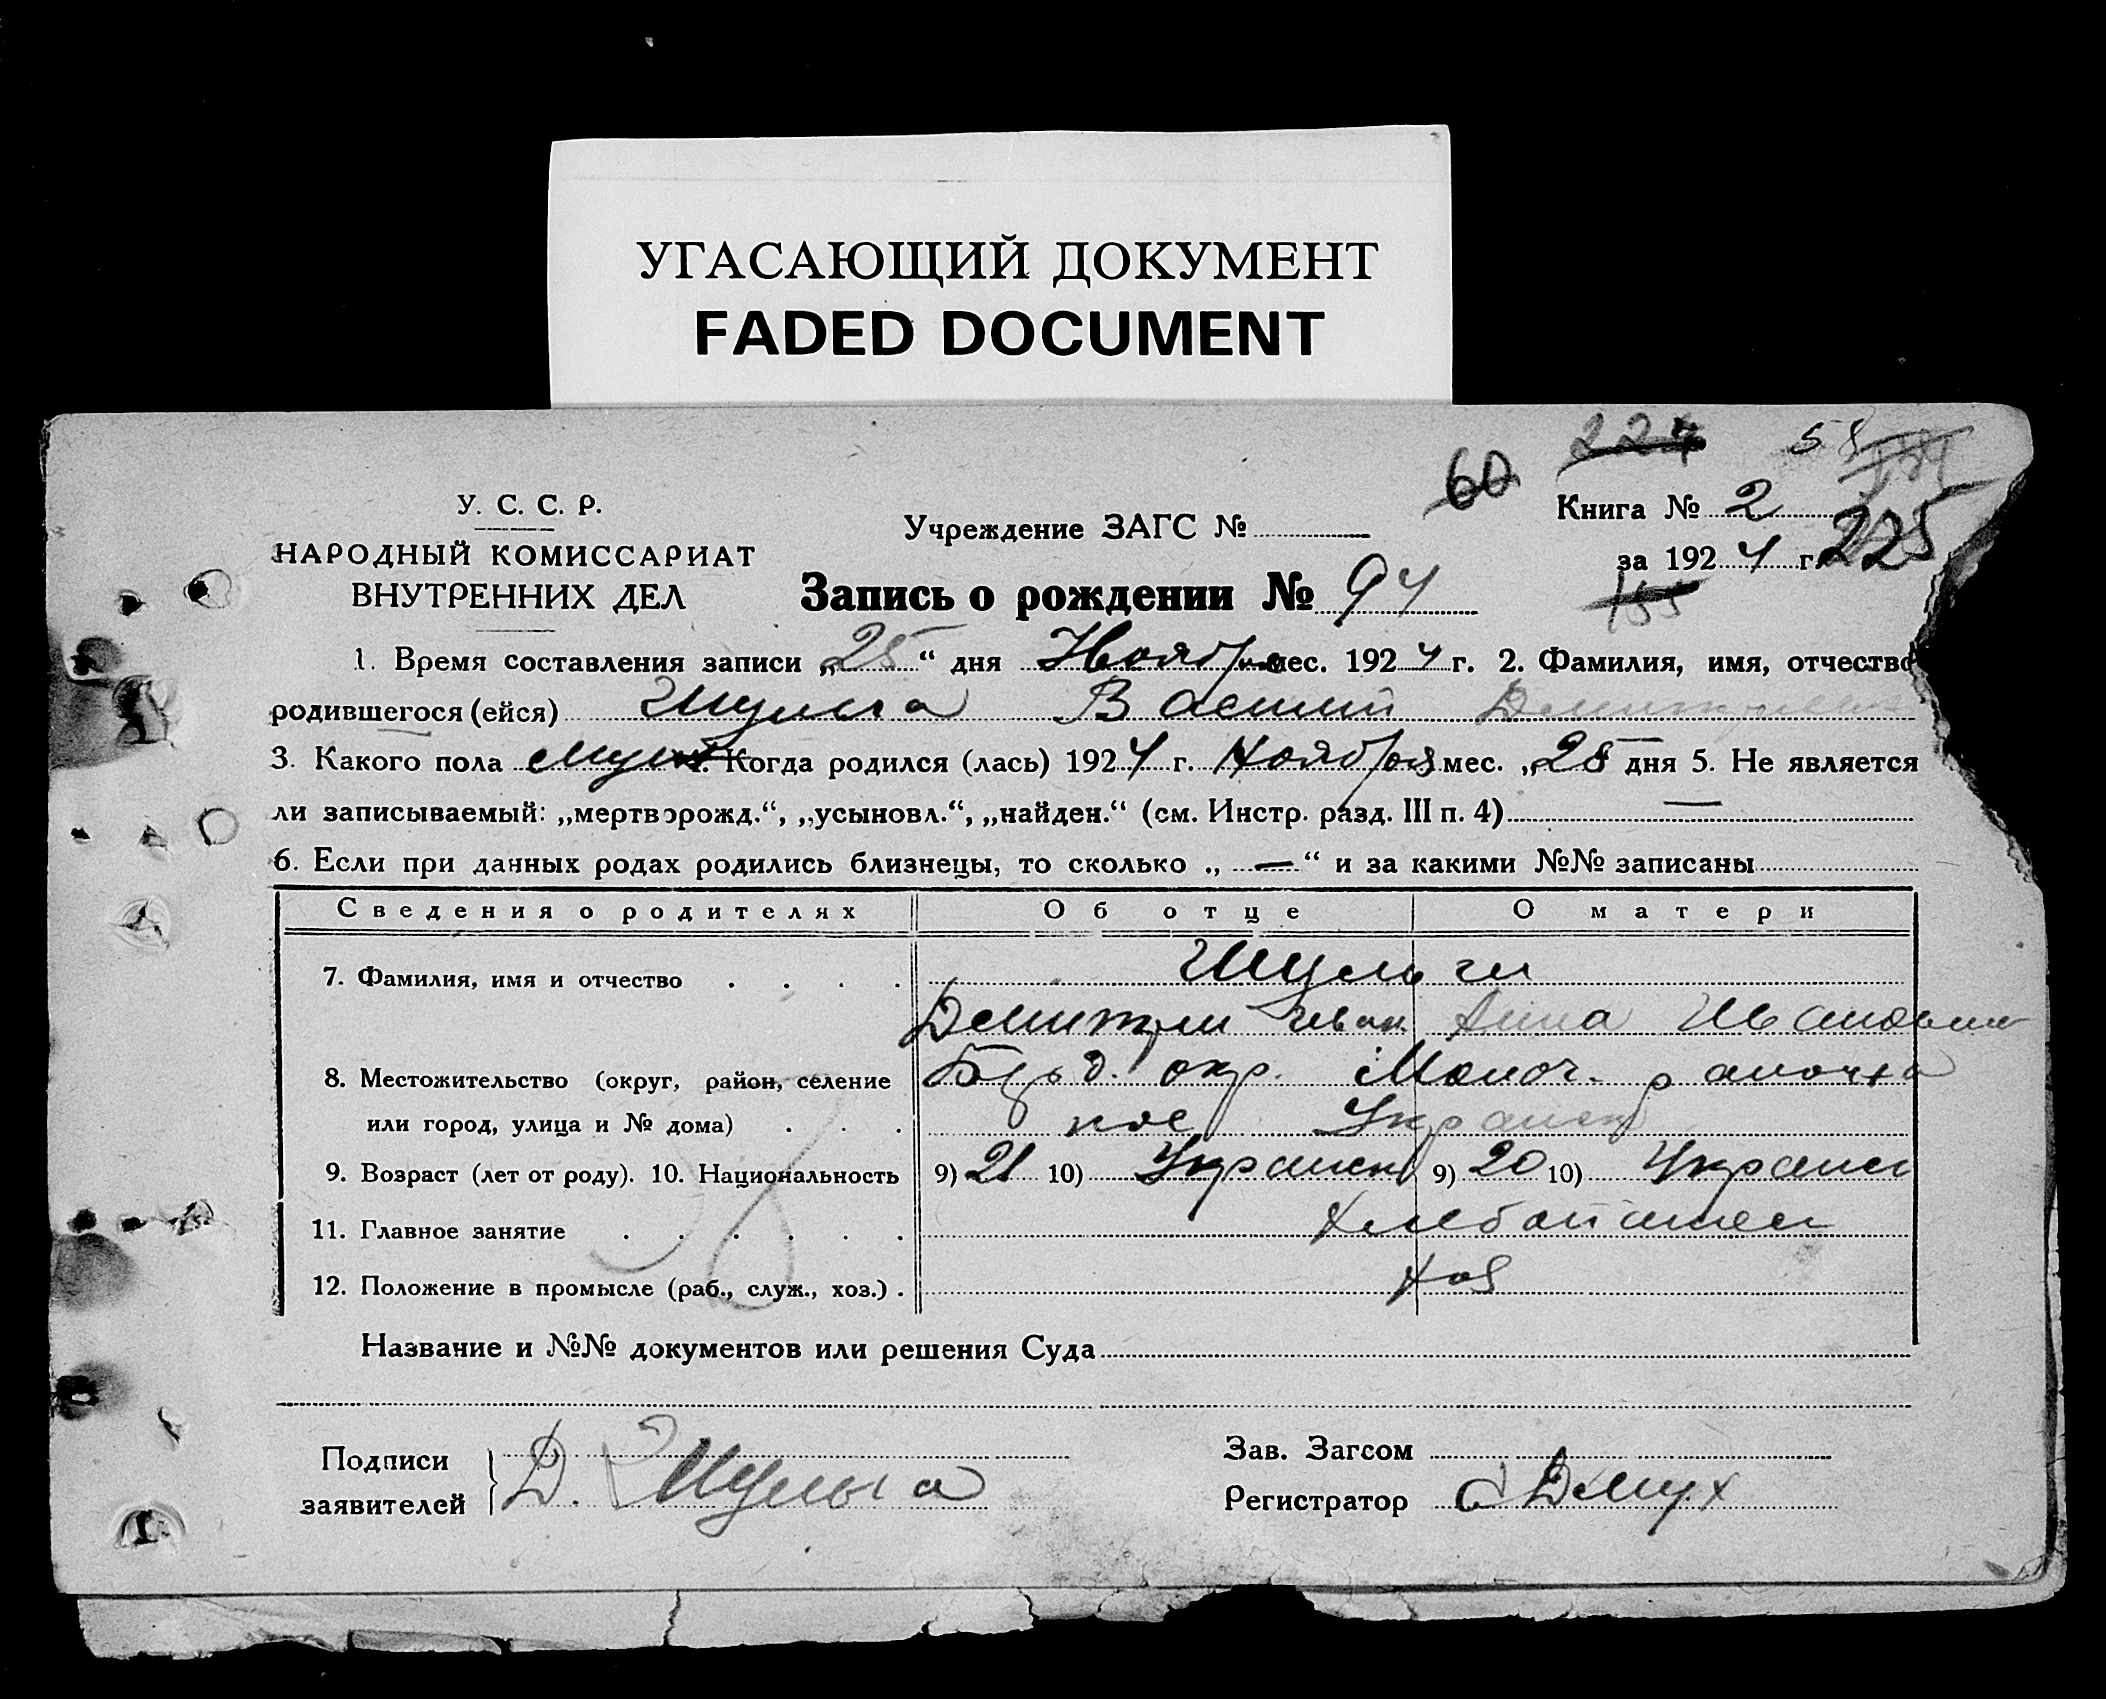 УГАСАЮЩИЙ ДОКУМЕНТ
FADED DOCUMENT
224 58
60
У. С. С. Р.
Книга № 2
Учреждение ЗАГС №
НАРОДНЫЙ КОМИССАРИАТ
за 1924 г. 225
ВНУТРЕННИХ ДЕЛ
Запись о рождении № 94
155
1. Время составления записи „25“ дня Ноября мес. 1924 г. 2. Фамилия, имя, отчество
родившегося (ейся) Шульга Василий Дмитриевич
3. Какого пола муж 4. Когда родился (лась) 1924 г. Ноября мес. „25 дня 5. Не является
ли записываемый: „мертворожд.“, „усыновл.“, „найден.“ (см. Инстр. разд. III п. 4) —
6. Если при данных родах родились близнецы, то сколько „ — “ и за какими №№ записаны
Сведения о родителях Об отце О матери
7. Фамилия, имя и отчество Шульги
Дмитрий Иван. Анна Ивановна
8. Местожительство (округ, район, селение окр.
или город, улица и № дома)
9. Возраст (лет от роду). 10. Национальность 9) 21 10) Украинец 9) 20 10) Украинс
11. Главное занятие
12. Положение в промысле (раб., служ., хоз.) хоз
Название и №№ документов или решения Суда
Подписи
заявителей Д. Шульга
Зав. Загсом
Регистратор